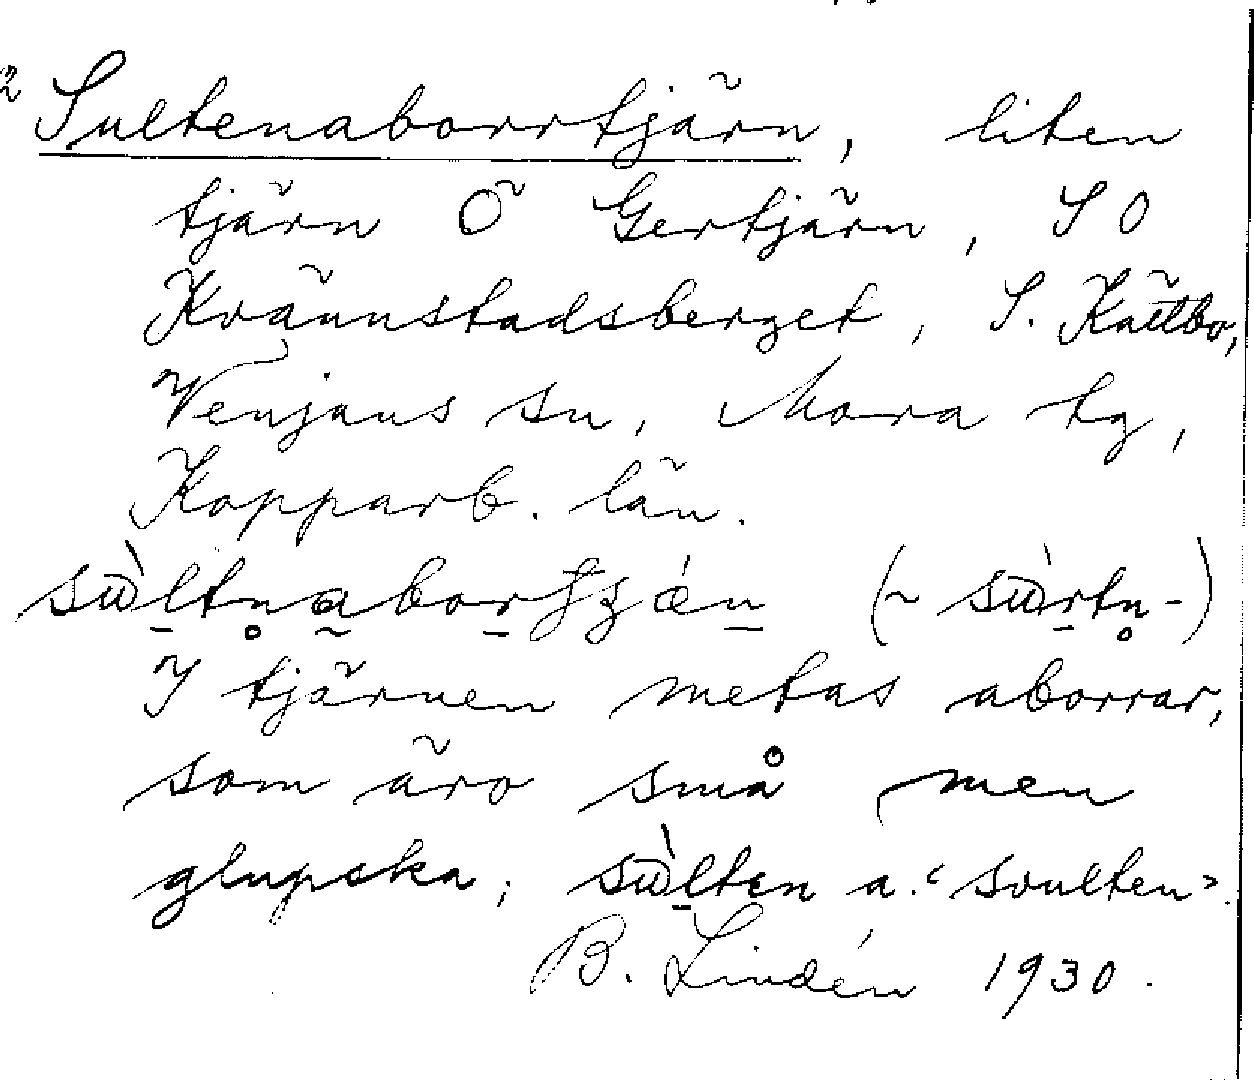 2 Sultenaborrtjärn, liten
tjärn Ö Gertjärn, SO
Kvännstadsberget, S. Kättbo,
Venjans sn, Mora tg,
Kopparb. län.
I tjärnen metas aborrar,
som äro små men
glupska; a. "svulten".
B. Lindén 1930.